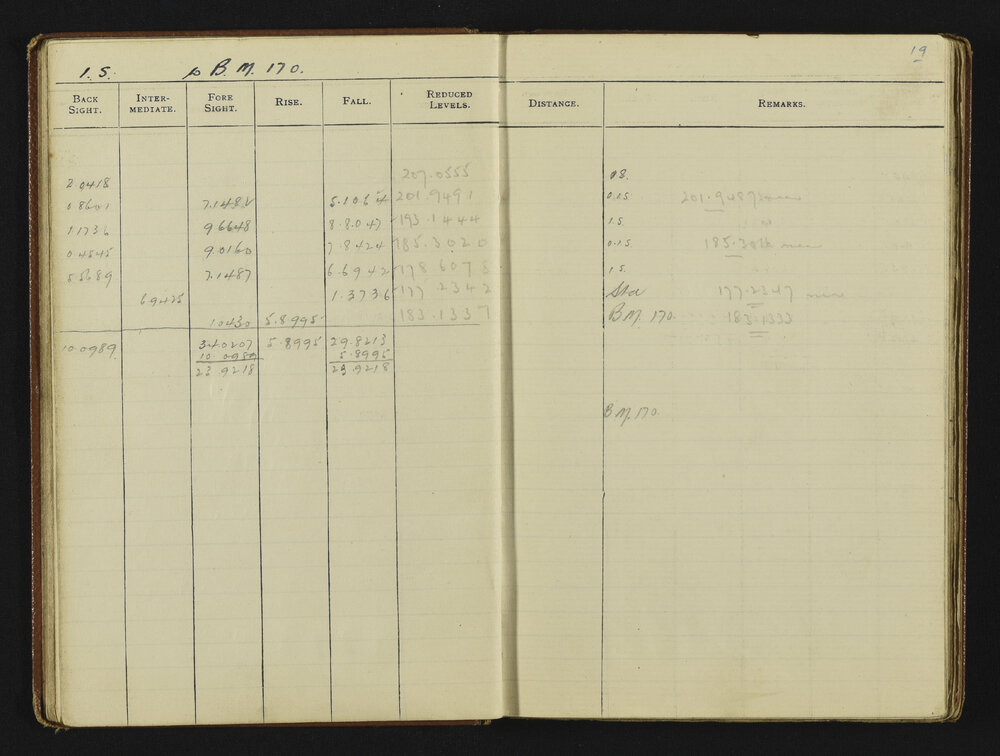 19
I.S. to B.M. 170.
BACK SIGHT. INTER-MEDIATE. FORE SIGHT. RISE. FALL. REDUCED LEVELS. DISTANCE. REMARKS.
2.0418 207.0555 O.S.
0.8601 7.1482 5.1064 201.9491 O.I.S. 201.9487
1.1736 9.6648 8.8047 193.1444 I.S.
0.4545 9.0160 7.8424 185.3020 O.I.S. 185.30
5.5689 7.1487 6.6942 178.6078 I.S.
6.9425 1.3736 177.2342 Sta 177.2347 mean
1.0430 5.8995 183.1337 B.M. 170. 183.1333
10.0989 34.0207 5.8995 29.8213
10.0989 5.8995
23.9218 23.9218
B.M. 170.